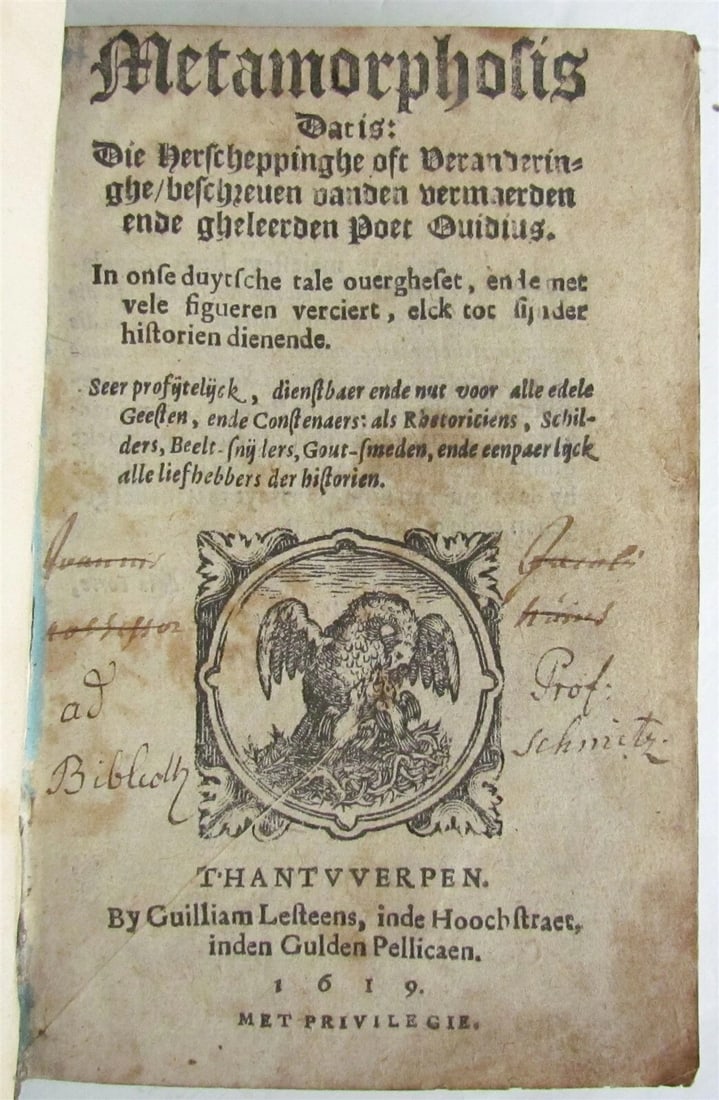 Metamorphosis
Dat is:
Die Herscheppinghe oft Veranderin-
ghe/beschreven vanden vermaerden
ende gheleerden Poet Ovidius.
In onse duytsche tale ouergheset, ende met
vele figueren verciert, elck tot sijnder
historien dienende.
Seer profijtelijck, dienstbaer ende nut voor alle edele
Geesten, ende Constenaers: als Rhetoriciens, Schil-
ders, Beelt-snijders, Gout-smeden, ende eenpaerlijck
alle liefhebbers der historien.
ad
Biblioth
Prof:
Schmitz.
T'HANTVVERPEN.
By Guilliam Lesteens, inde Hoochstraet,
inden Gulden Pellicaen.
1619.
MET PRIVILEGIE.